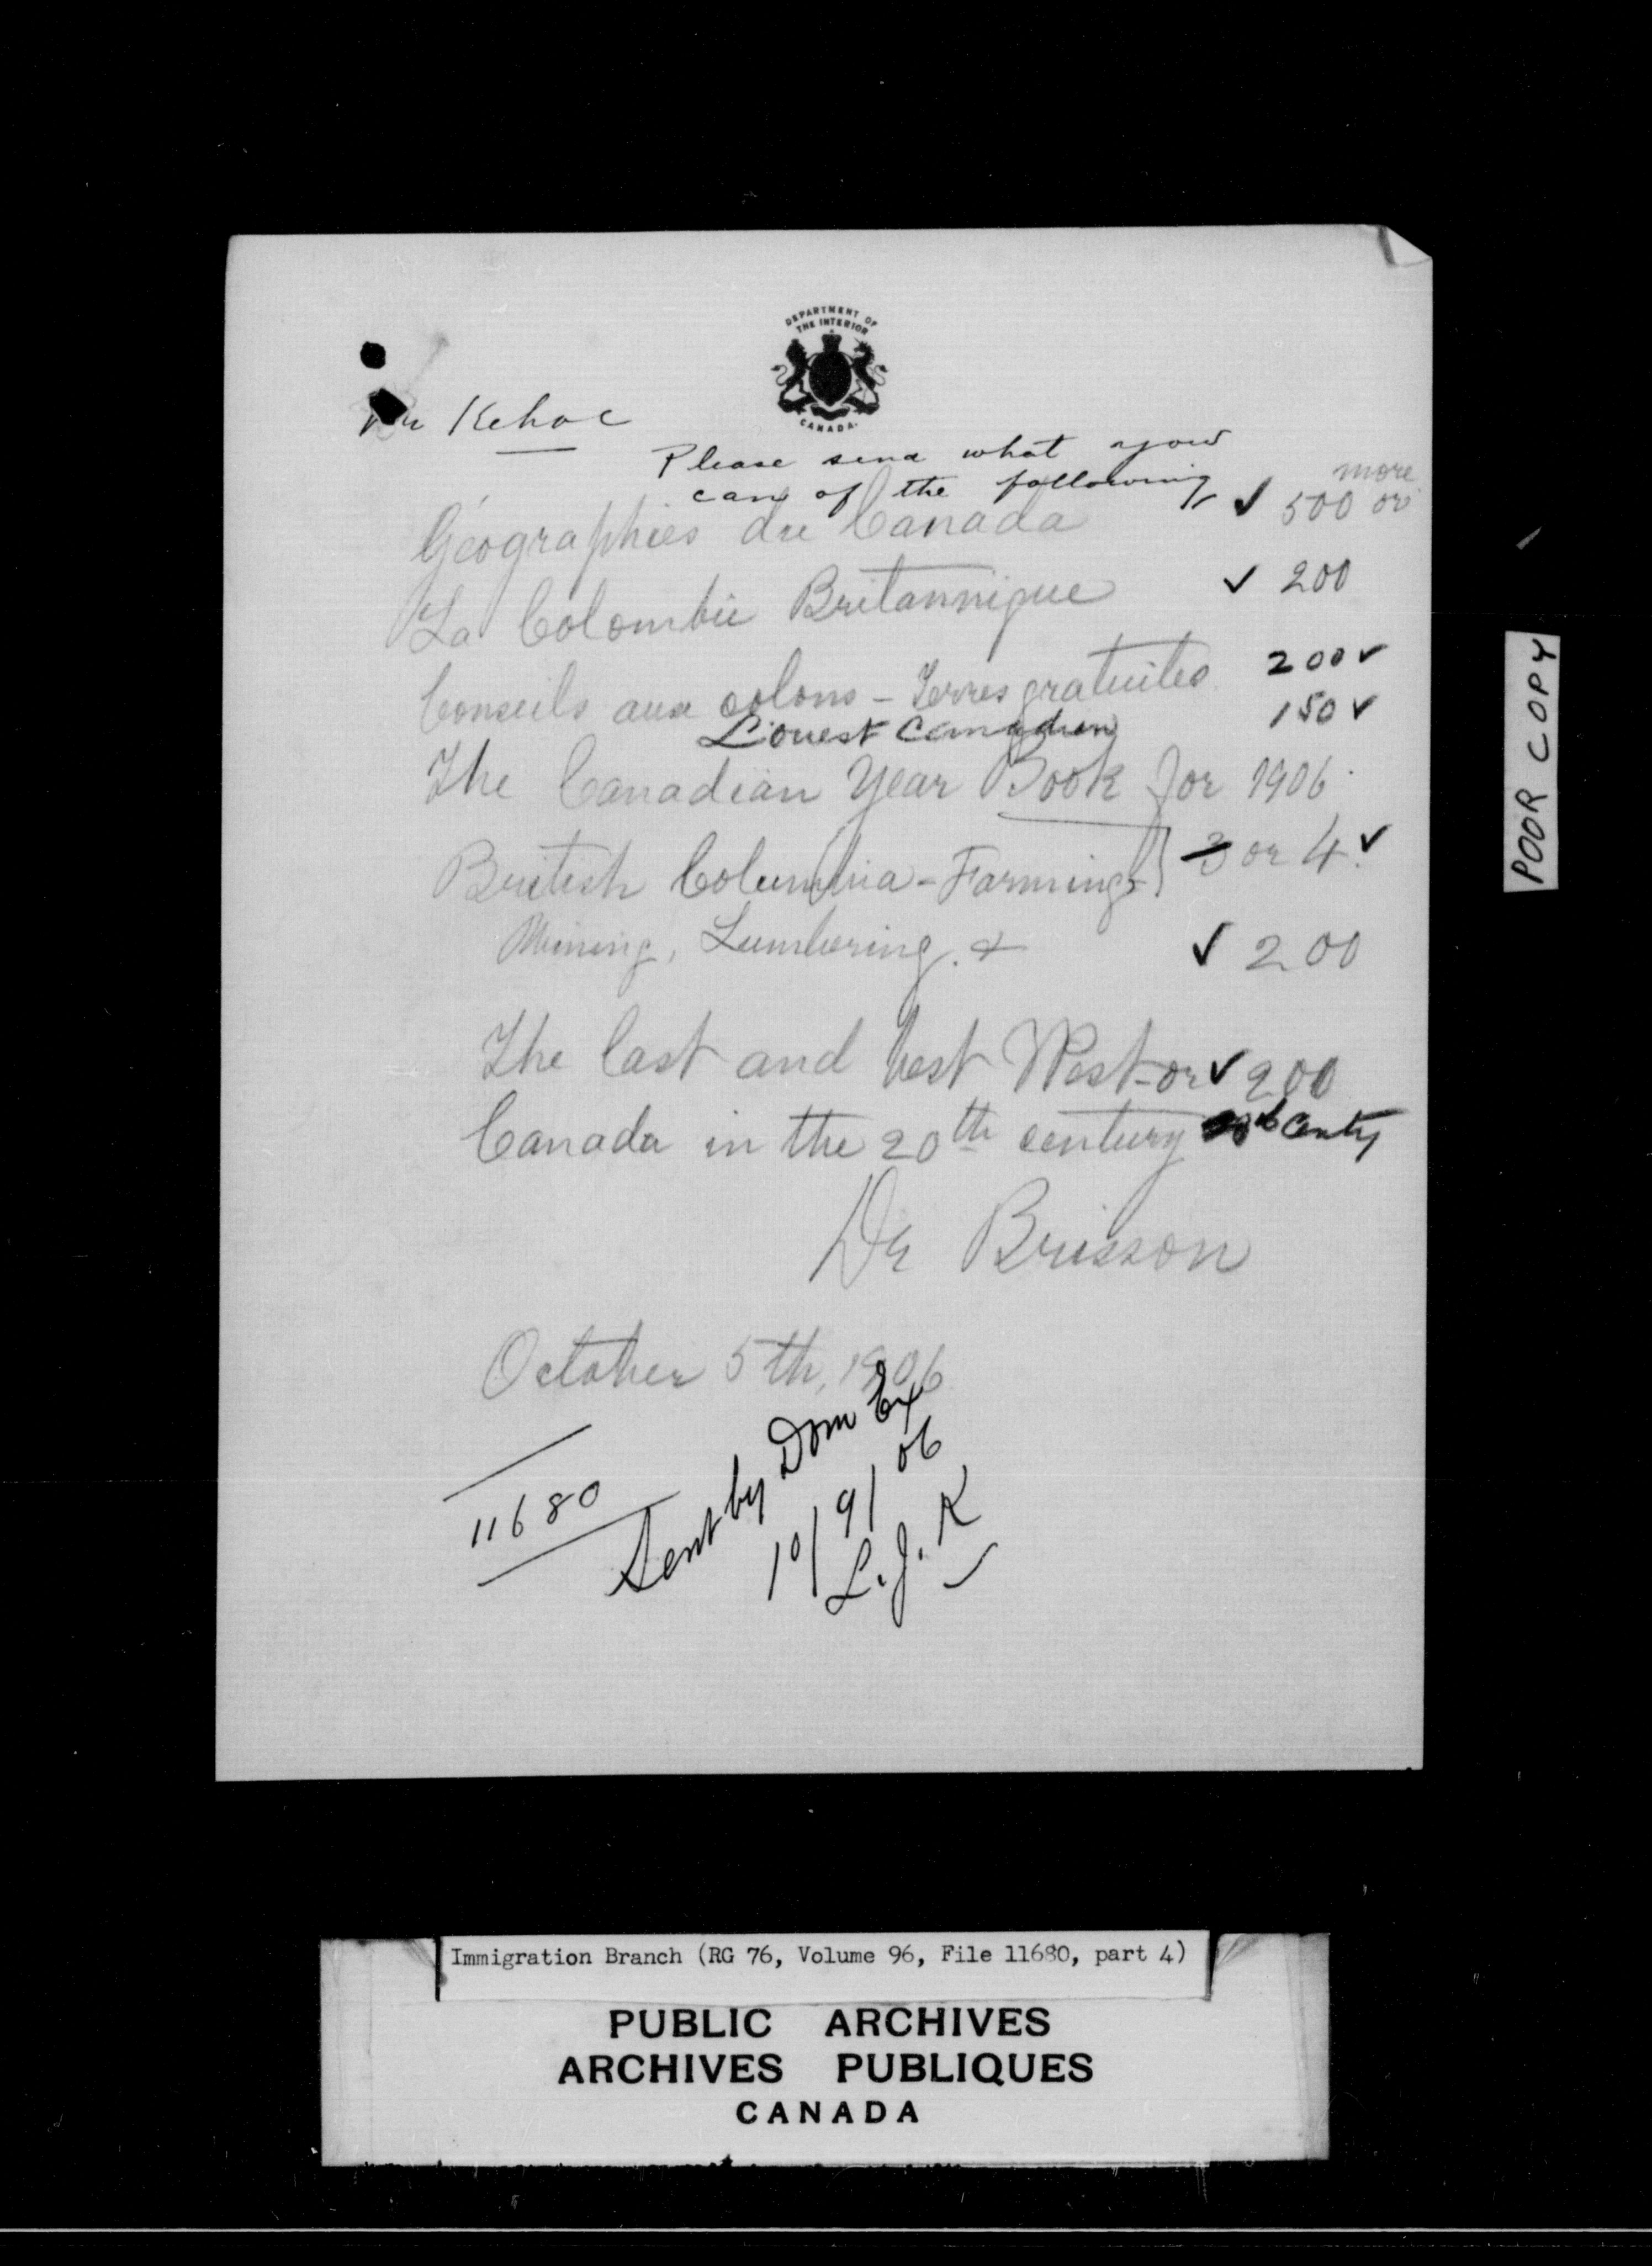 DEPARTMENT OF
THE INTERIOR
CANADA.
Mr Kehoe
Please send what you
can of the following
more
Géographies du Canada ✓ 500 or
La Colombie Britannique ✓ 200
Conseils aux colons - Terres gratuites 200 ✓
L'ouest Canadien 150 ✓
The Canadian Year Book for 1906.
British Columbia - Farming } 3 or 4 ✓
Mining, Lumbering, & ✓ 200
The last and best West - or ✓ 200
Canada in the 20th century 20th Centy
Dr Brisson
October 5th, 1906
11680
Sent by Dom Ex
10/9/06
L. J. K
POOR COPY
Immigration Branch (RG 76, Volume 96, File 11680, part 4)
PUBLIC ARCHIVES
ARCHIVES PUBLIQUES
CANADA